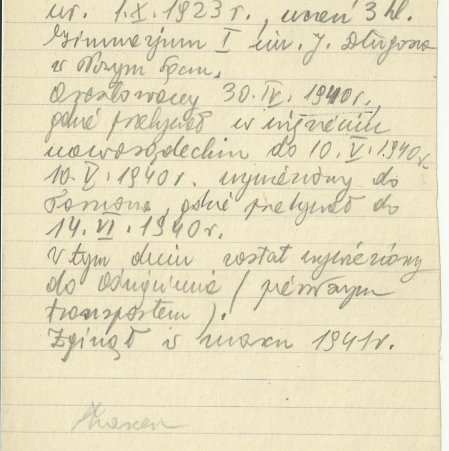 ur. 1.X.1923 r., uczeń 3 kl.
Gimnazjum I im. J. Długosza
w Nowym Sączu.
Aresztowany 30.IV.1940r.,
gdzie przebywał w więzieniu
nowosądeckim do 10.V.1940r.
10.V.1940r. wywieziony do
Tarnowa, gdzie przebywał do
14.VI.1940r.
W tym dniu został wywieziony
do Oświęcimia (pierwszym
transportem).
Zginął w marcu 1941r.